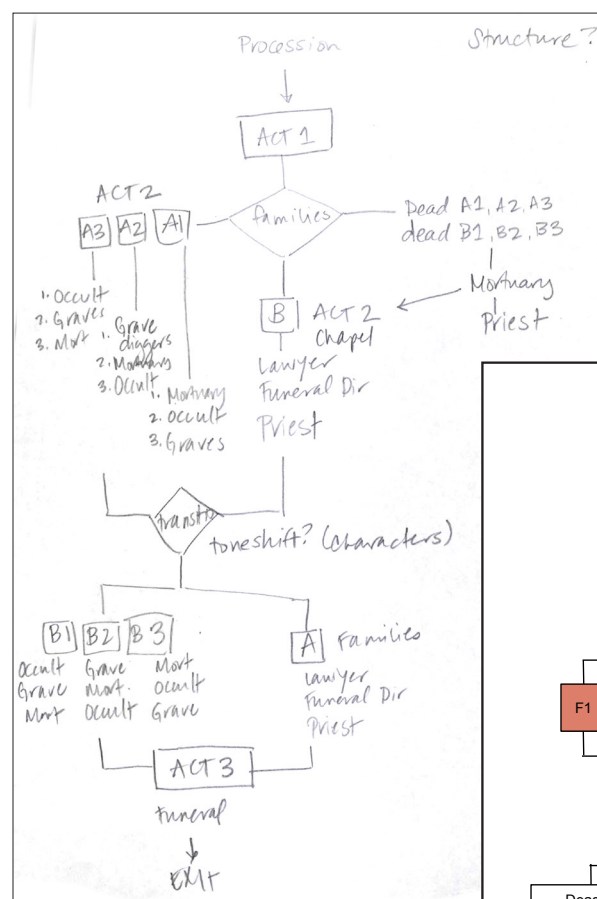 Structure?
Procession
ACT 1
families
ACT 2
A3 A2 A1
Dead A1, A2, A3
dead B1, B2, B3
Mortuary
Priest
1. Occult
2. Graves
3. Mort
1. Grave
diggers
2. Mortuary
3. Occult
1. Mortuary
2. Occult
3. Graves
B
ACT 2
Chapel
Lawyer
Funeral Dir
Priest
toneshift? (characters)
B1 B2 B3
Occult Grave Mort
Grave Mort. Occult
Mort Occult Grave
A Families
Lawyer
Funeral Dir
Priest
ACT 3
Funeral
EXIT
F1